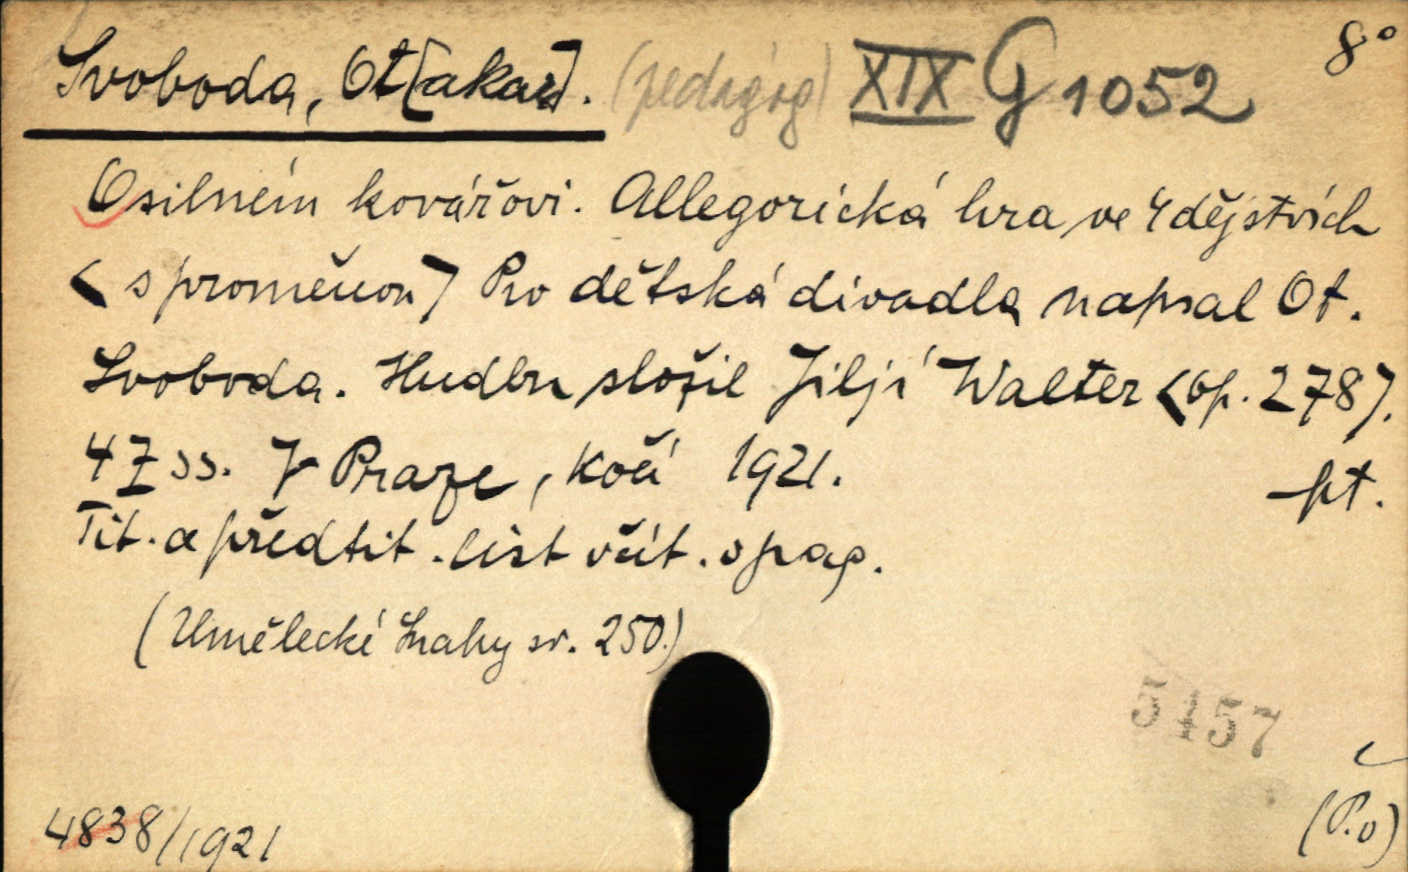 Svoboda, Ot[akar]. (pedagog) XIX G 1052 8°
O silném kovářovi. Allegorická hra ve 4 dějstvích
< s proměnou > Pro dětská divadla napsal Ot.
Svoboda. Hudbu složil Jiljí Walter <op. 278>.
47 ss. V Praze, Kočí 1921. pt.
Tit. a předtit. list včít. v pag.
(Umělecké snahy sv. 250.)
5157
4838/1921 (P.o)